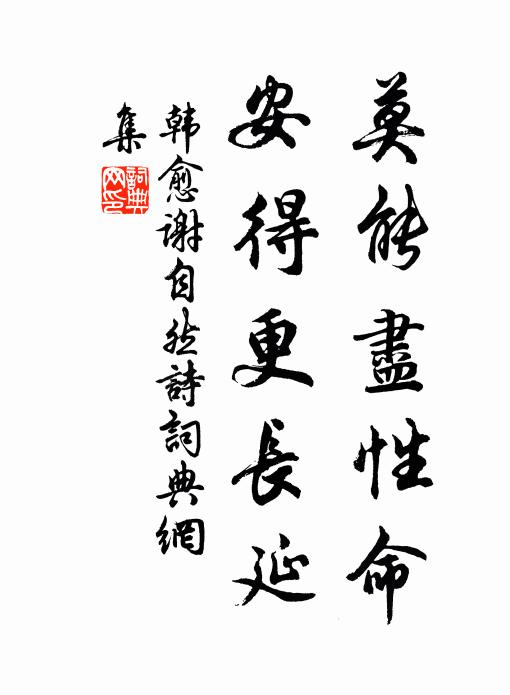 莫能盡性命
安得更長延
韩愈谢自然詩詞典網
集
詞典
网印